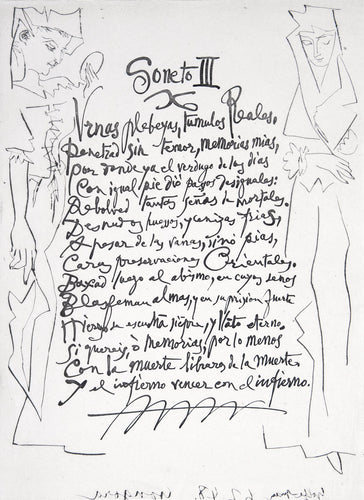 Soneto III
Vrnas plebeyas, tumulos Reales,
Penetrad sin temor, memorias mias,
por donde ya el verdugo de los dias
Con igual pie dió pasos desiguales:
Rebolved tantas señas de mortales.
Desnudos huessos, y cenizas frias,
A pesar de las vanas, sinó pias,
Caras preservaciones Orientales.
Baxad luego al abismo, en cuyos senos
Blasfeman almas, y en su prision fuerte
Hierros se escuchan siepre, y llāto eterno.
Si quereis, ò memorias, por lo menos
Con la muerte libraros de la muerte
Y el infierno vencer con el infierno.